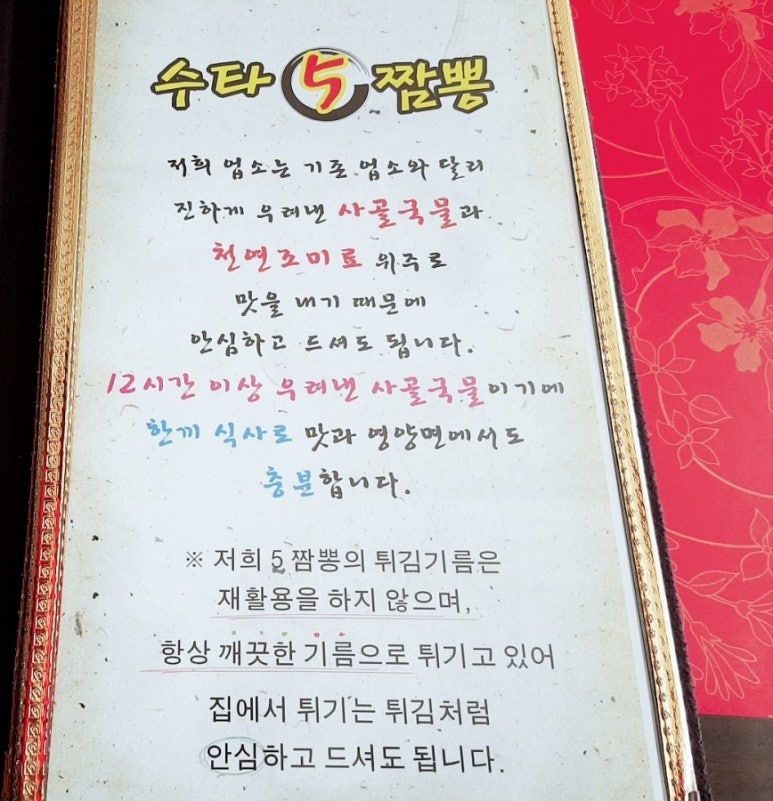 수타 5 짬뽕
저희 업소는 기존 업소와 달리
진하게 우려낸 사골국물과
천연조미료 위주로
맛을 내기 때문에
안심하고 드셔도 됩니다.
12시간 이상 우려낸 사골국물이기에
한끼 식사로 맛과 영양면에서도
충분합니다.
※ 저희 5 짬뽕의 튀김기름은
재활용을 하지 않으며,
항상 깨끗한 기름으로 튀기고 있어
집에서 튀기는 튀김처럼
안심하고 드셔도 됩니다.